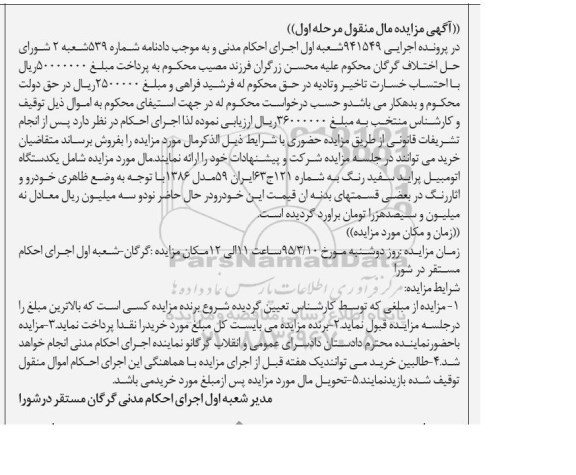 ((آگهی مزایده مال منقول مرحله اول))
در پرونده اجرایی ۹۴۱۵۴۹شعبه اول اجرای احکام مدنی و به موجب دادنامه شماره ۵۳۹شعبه ۲ شورای
حل اختلاف گرگان محکوم علیه محسن زرگران فرزند مصیب محکوم به پرداخت مبلغ ۵۰۰۰۰۰۰۰ریال
با احتساب خسارت تاخیر وتادیه در حق محکوم له فرشید فراهی و مبلغ ۲۵۰۰۰۰۰ریال در حق دولت
محکوم و بدهکار می باشدو حسب درخواست محکوم له در جهت استیفای محکوم به اموال ذیل توقیف
و کارشناس منتخب به مبلغ ۳۶۰۰۰۰۰۰ریال ارزیابی نموده لذا اجرای احکام در نظر دارد پس از انجام
تشریفات قانونی از طریق مزایده حضوری با شرایط ذیل الذکرمال مورد مزایده را بفروش برساند متقاضیان
خرید می توانند در جلسه مزایده شرکت و پیشنهادات خود را ارائه نمایند.مال مورد مزایده شامل یکدستگاه
اتومبیل پراید سفید رنگ به شماره ۱۲۱ج۶۳ایران ۵۹مدل ۱۳۸۶با توجه به وضع ظاهری خودرو و
اثاررنگ در بعضی قسمتهای بدنه ان قیمت این خودرودر حال حاضر نودو سه میلیون ریال معادل نه
میلیون و سیصدهزرا تومان براورد گردیده است.
((زمان و مکان مورد مزایده))
زمان مزایده :روز دوشنبه مورخ ۹۵/۳/۱۰ساعت ۱۱الی ۱۲مکان مزایده :گرگان-شعبه اول اجرای احکام
مستقر در شورا
شرایط مزایده:
۱-مزایده از مبلغی که توسط کارشناس تعیین گردیده شروع برنده مزایده کسی است که بالاترین مبلغ را
درجلسه مزایده قبول نماید.۲-برنده مزایده می بایست کل مبلغ مورد خریدرا نقدا پرداخت نماید.۳-مزایده
باحضورنماینده محترم دادستان دادسرای عمومی و انقلاب گرگانو نماینده اجرای احکام مدنی انجام خواهد
شد.۴-طالبین خرید می توانندیک هفته قبل از اجرای مزایده با هماهنگی این اجرای احکام اموال منقول
توقیف شده بازیدنمایند.۵-تحویل مال مورد مزایده پس ازمبلغ مورد خریدمی باشد.
مدیر شعبه اول اجرای احکام مدنی گرگان مستقر در شورا
ParsNamadData